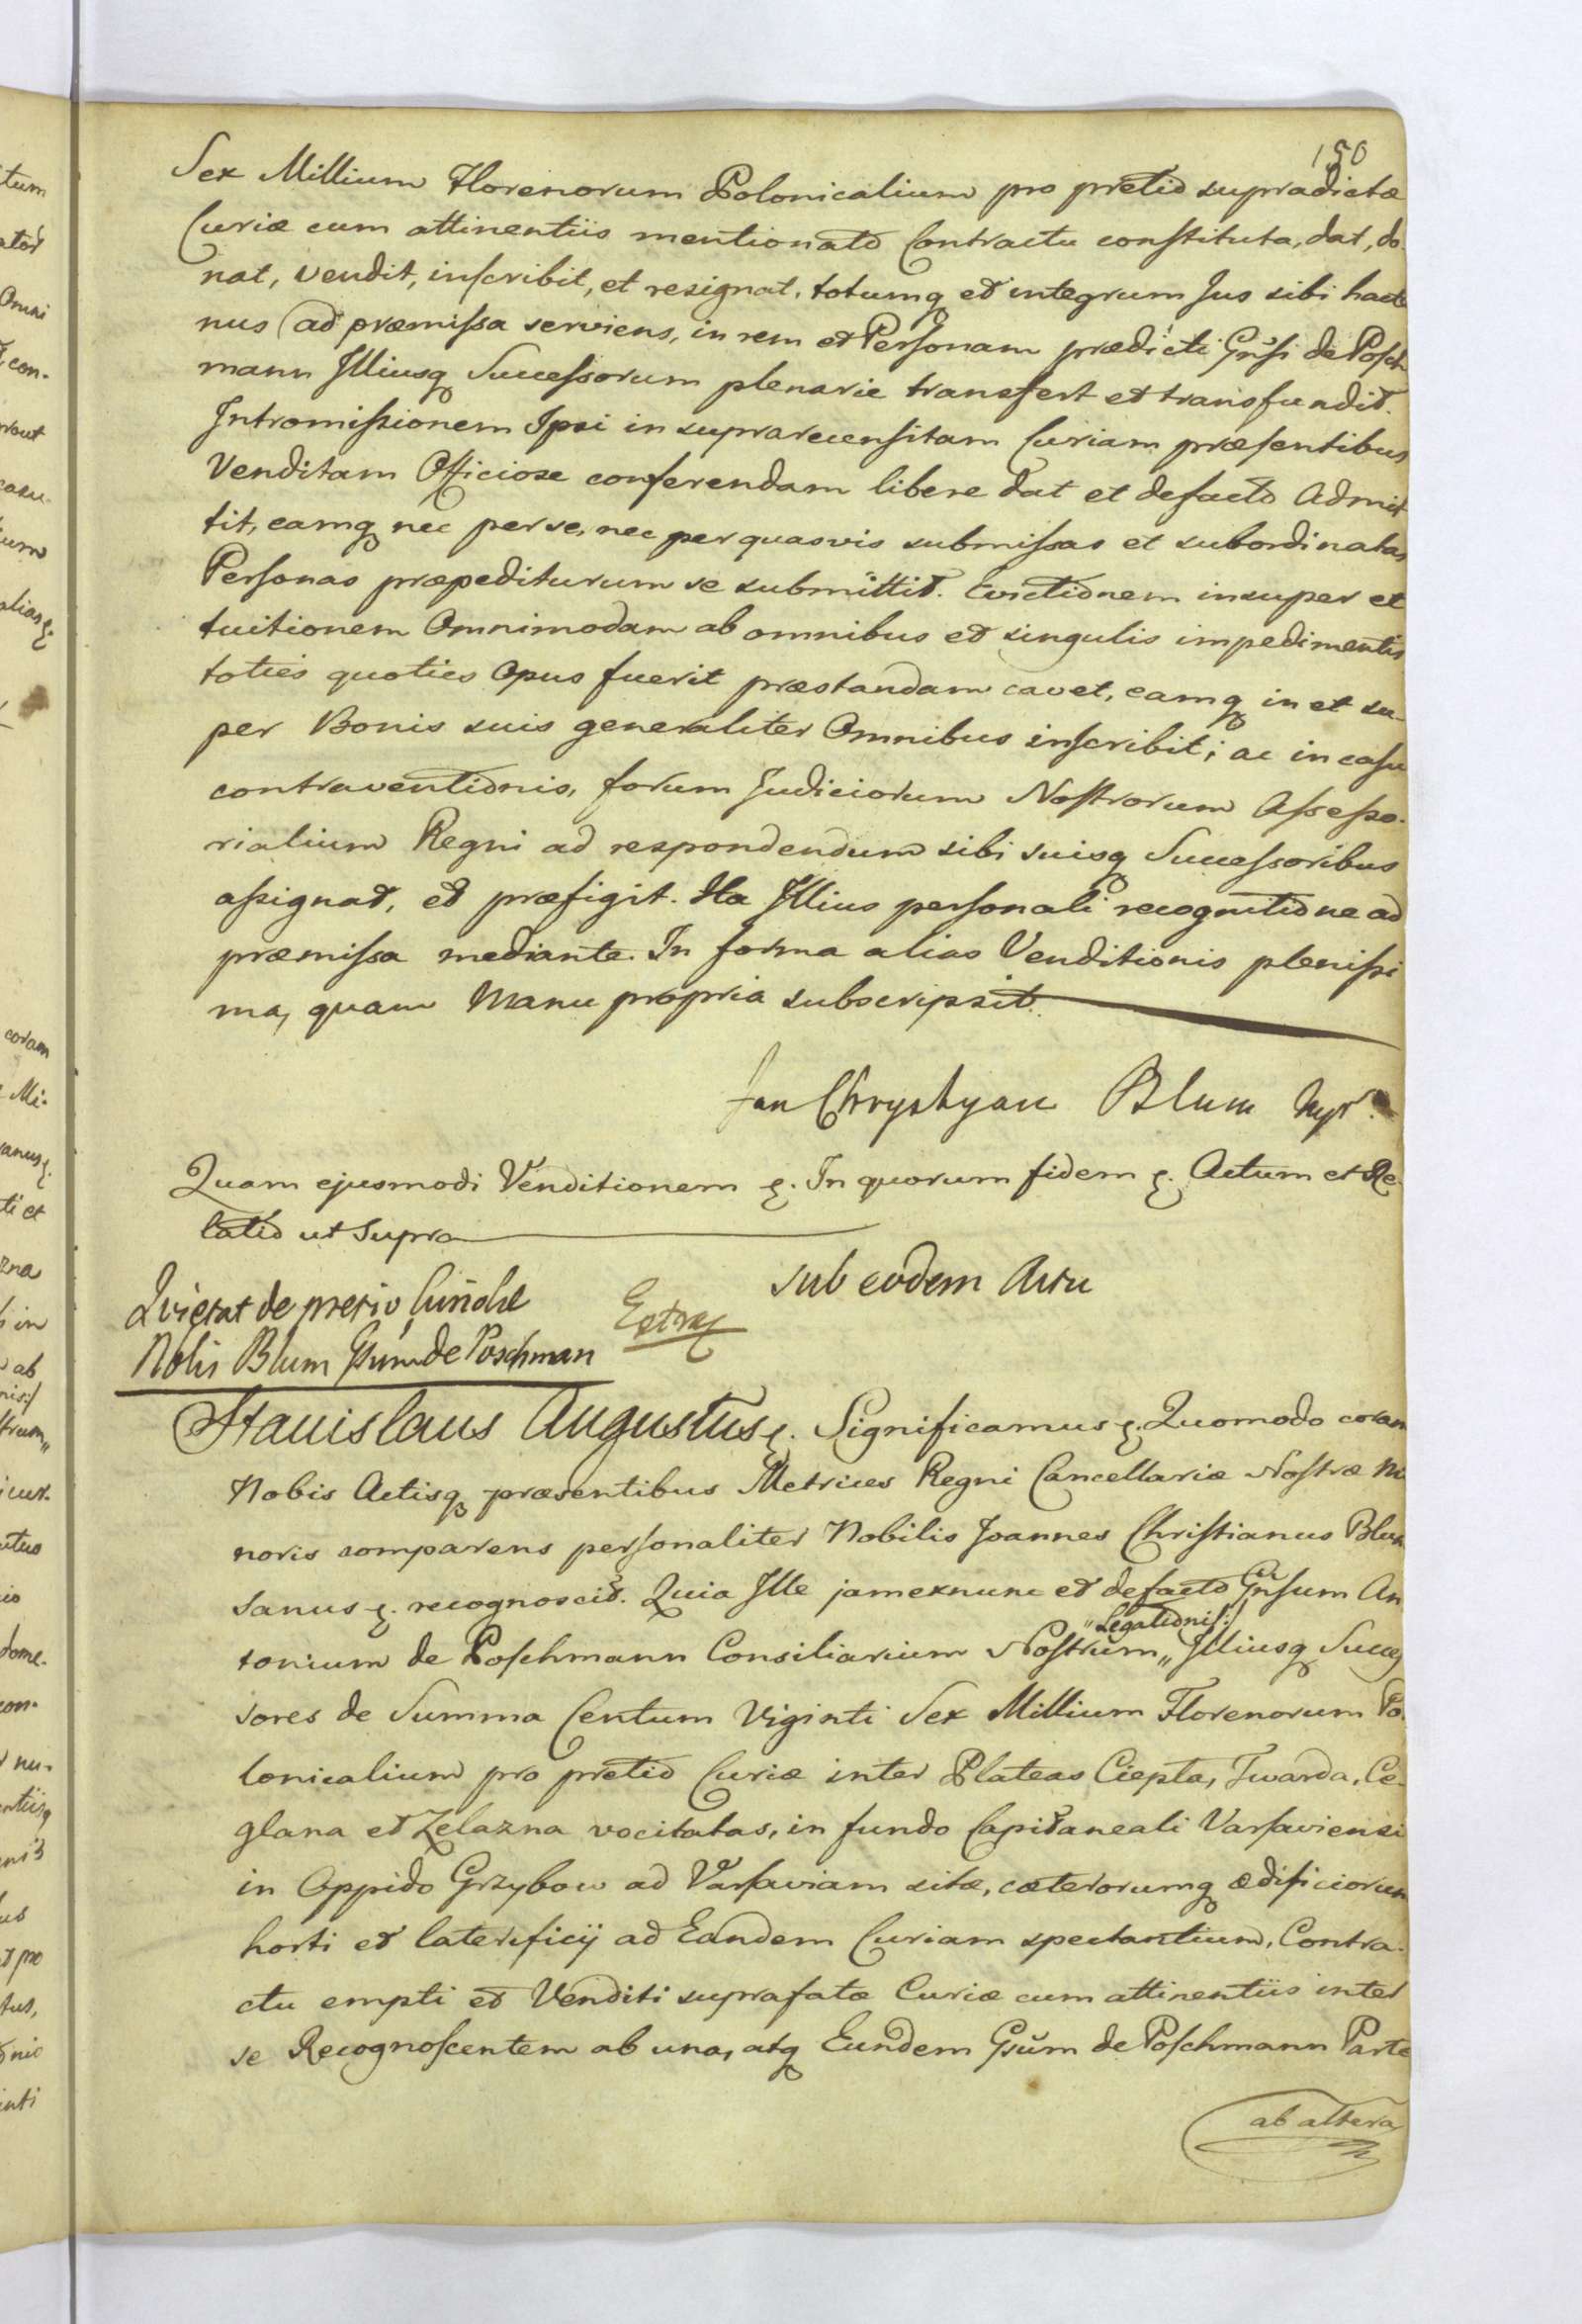 150
Sex Millium Florenorum Polonicalium pro pretio supradictæ
Curiæ cum attinentiis mentionato Contractu constituta, dat, do-
nat, vendit, inscribit, et resignat, totumq et integrum Jus sibi hacte
nus ad præmissa serviens, in rem et Personam prædicti Gnsi de Posch
mann Illiusq Successorum plenarie transfert et transfundit.
Intromissionem Ipsi in suprarecensitam Curiam præsentibus
Venditam Officiose conferendam libere dat et defacto Admit
tit, eamq nec per se, nec per quasvis submissas et subordinatas
Personas præpediturum se submittit. Evictionem insuper et
tuitionem Omnimodam ab omnibus et singulis impedimentis
toties quoties Opus fuerit præstandam cavet, eamq in et su-
per Bonis suis generaliter Omnibus inscribit; ac in casu
contraventionis, forum Judiciorum Nostrorum Assesso-
rialium Regni ad respondendum sibi suisq Successoribus
assignat, et præfigit. Ita Illius personali recognitione ad
præmissa mediante. In forma alias Venditionis plenissi
ma, quam Manu propria subscripsit.
Jan Chrystyan Blum mpr
Quam ejusmodi Venditionem &. In quorum fidem &. Actum et Re-
latio ut Supra
sub eodem Actu
Quietat de pretio
Nobis Blum Gsum de Poschman
Extrax
Stanislaus Augustus &. Significamus &. Quomodo coram
Nobis Actisq præsentibus Metrices Regni Cancellariæ Nostræ Mi
noris comparens personaliter Nobilis Joannes Christianus Blum
sanus &. recognoscit. Quia Ille jam exnunc et defacto Gnsum An
tonium de Poschmann Consiliarium Nostrum „Legationis:/ Illiusq Succes
sores de Summa Centum Viginti Sex Millium Florenorum Po-
lonicalium pro pretio Curiæ inter Plateas Ciepta, Twarda, Ce-
glana et Zelazna vocitatas, in fundo Capitaneali Varsaviensi
in Oppido Grzybow ad Varsaviam sitæ, cæterorumq ædificiorum
horti et laterificij ad Eandem Curiam spectantium, Contra-
ctu empti et Venditi suprafatæ Curiæ cum attinentiis inter
se Recognoscentem ab una, atq Eundem Gsum de Poschmann Parte
ab altera